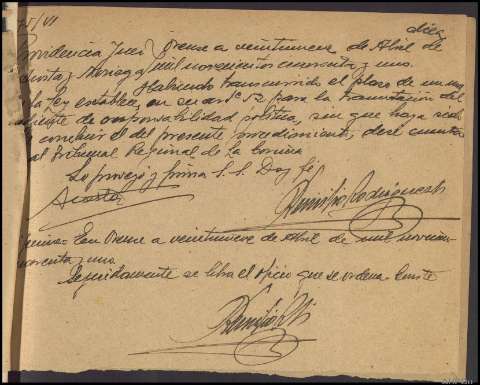 diez
75/VI
Providencia Juez Orense a veintinueve de Abril de
mil novecientos cuarenta y uno.
Habiendo transcurrido el plazo de un mes
la Ley establece en su artº 52 para la tramitación del
expediente de responsabilidad política, sin que haya sido
concluir el del presente procedimiento, dese cuenta
al Tribunal Regional de la Coruña
Lo proveyó y firma S.S. Doy fé.
Acosta Remigio Rodriguez
En Orense a veintinueve de Abril de mil novecien
cuarenta y uno.
Seguidamente se libra el oficio que se ordena. Conste